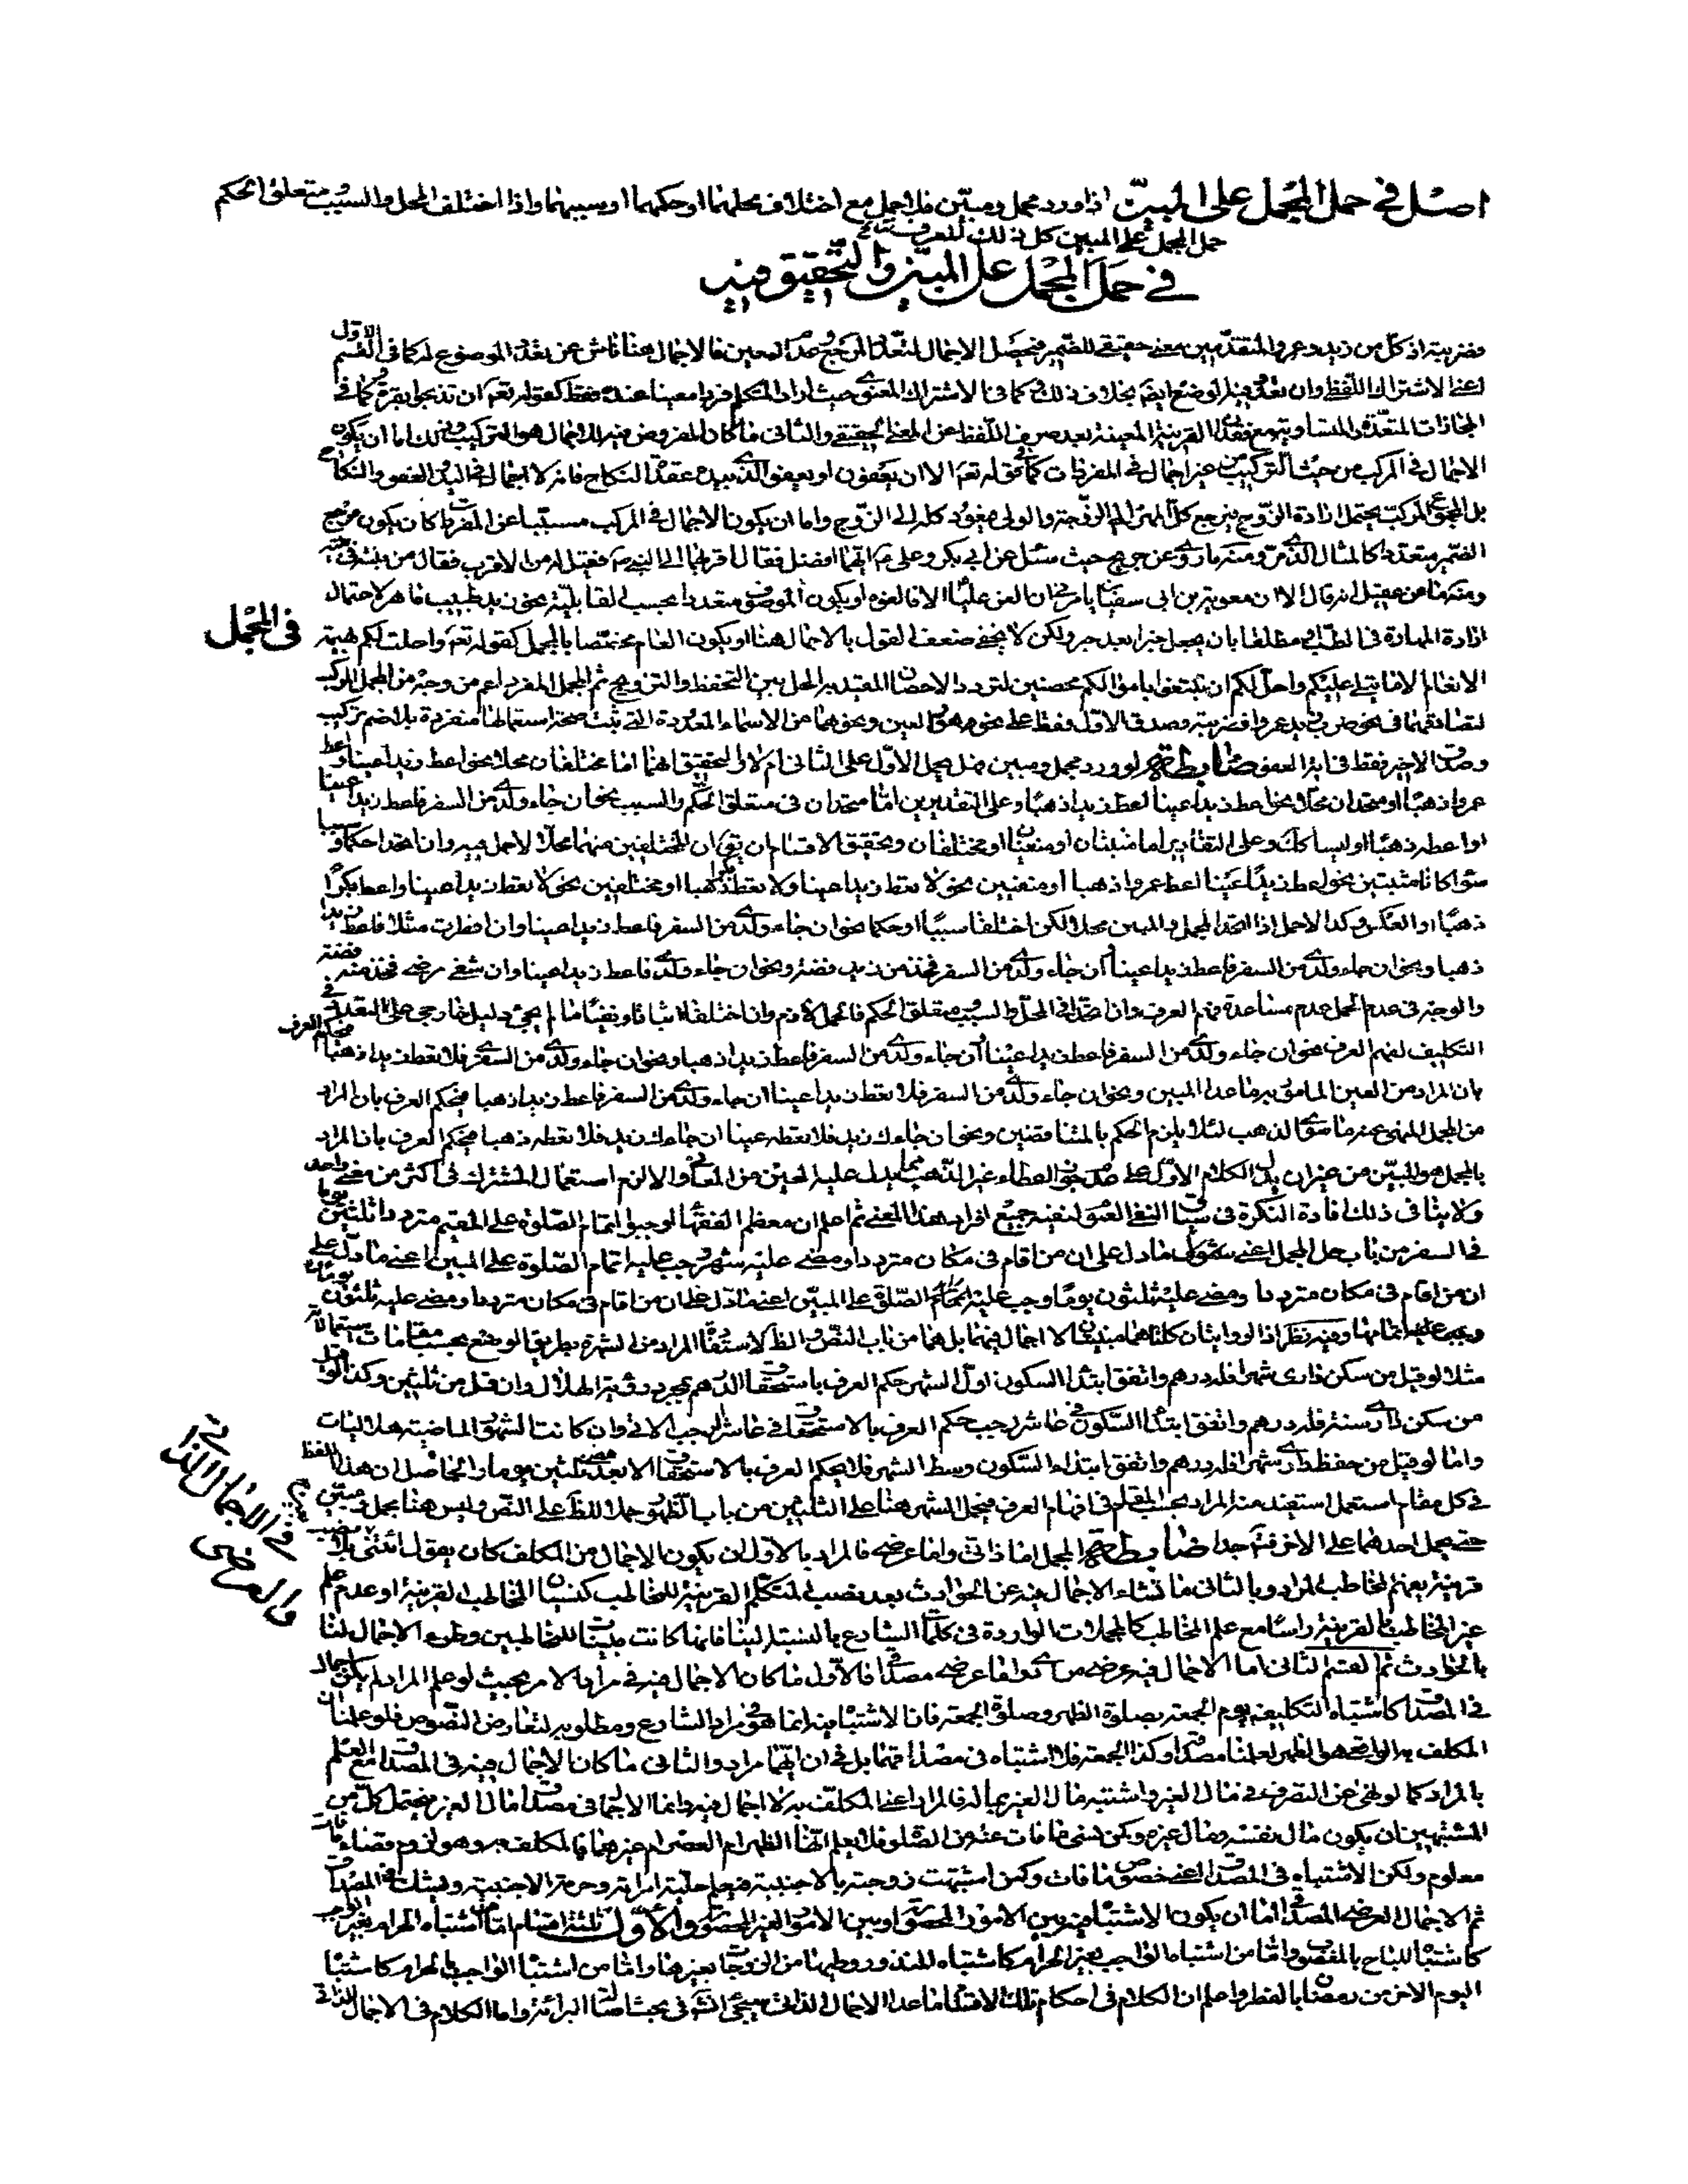 اصل في حمل المجمل على المبيّن اذا ورد مجمل ومبيّن فلا حمل مع اختلاف محلهما او حكمهما او سببهما واذا اختلف المحل والسبب ومتعلق الحكم
حمل المجمل على المبين كل ذلك للعرف
في حمل المجمل على المبين والتحقيق فيه
فضربته اذ كل من زيد وعمرو المتقدمين معنى حقيقي للضمير فيحصل الاجمال لتعدد المرجع وعدم المعين فالاجمال هنا ناش عن تعدد الموضوع له كما في القسم الاول
اعني الاشتراك اللفظي وان تعدد فيه الوضع ايضا بخلاف ذلك وكما في الاشتراك المعنوي حيث اراد المتكلم فردا معينا عنده فقط كقوله تعم ان تذبحوا بقرة وكما في
المجازات المتعددة المتساوية مع فقد القرينة المعينة بعد صرف اللفظ عن المعنى الحقيقي والثاني ما كان المفروض فيه الاجمال هو التركيب وذلك اما ان يكون
الاجمال في المركب من حيث التركيب من غير اجمال في المفردات كما في قوله تعم الا ان يعفون او يعفو الذي بيده عقدة النكاح فانه لا اجمال في اليد والعفو والنكاح
بل المجموع المركب يحتمل ارادة الزوج فيرجع كل المهر الى الزوجة والولي فيعود كله الى الزوج واما ان يكون الاجمال في المركب مسببا عن المفردات كان يكون مرجع
الضمير متعددا كالمثال الذي مر ومنه ما روي عن جريح حيث سئل عن ابي بكر وعلي ع ايهما افضل فقال اقربهما الى النبي ص فقيل له من الاقرب فقال من بنته في بيته
ومنه ما عن عقيل انه قال الا ان معوية بن ابي سفيان يامرني ان العن عليا الا فالعنوه او يكون الموصوف متعددا بحسب القابلية نحو زيد طبيب ماهر لاحتمال
ارادة المهارة في الطب او مطلقا بان يجعل خبرا بعد خبر ولكن لا يخفى ضعف القول بالاجمال هنا او يكون العام مختصا بالمجمل كقوله تعم واحلت لكم بهيمة
في المجمل
الانعام الا ما يتلى عليكم واحل لكم ان تبتغوا باموالكم محصنين لتردد الاحصان المقيد به الحل بين التحفظ والتزويج ثم المجمل المفرد اعم من وجه من المجمل المركب
لتصادقهما في نحو ضرب زيد عمروا فضربته وصدق الاول فقط على نحو هو العين ونحوهما من الاسماء المعدودة التي ثبت صحة استعمالها منفردة بلا ضم تركيب
وصدق الاخير فقط في اية العفو ضابطة لو ورد مجمل ومبين فهل يحمل الاول على الثاني ام لا والتحقيق انهما اما مختلفان محلا نحو اعط زيدا عينا واعط
عمروا ذهبا او متحدان محلا نحو اعط زيدا عينا اعط زيدا ذهبا وعلى التقديرين اما متحدان في متعلق الحكم والسبب نحو ان جاء ولدي من السفر فاعط زيدا عينا
او اعطه ذهبا او ليسا كك وعلى التقادير اما مثبتان او منفيان او مختلفان وتحقيق الاقسام ان يق ان المختلفين منهما محلا لا حمل فيه وان اتحدا حكما وسببا
سواء كانا مثبتين نحو اعط زيدا عينا اعط عمروا ذهبا او منفيين نحو لا تعط زيدا عينا ولا تعط بكرا ذهبا او مختلفين نحو لا تعط زيدا عينا واعط بكرا
ذهبا او العكس وكذا لا حمل اذا اتحد المجمل والمبين محلا لكن اختلفا سببا او حكما نحو ان جاء ولدي من السفر فاعط زيدا عينا وان افطرت مثلا فاعط زيدا
ذهبا ونحو ان جاء ولدي من السفر فاعط زيدا عينا ان جاء ولدي من السفر فخذ من زيد فضة ونحو ان جاء ولدي فاعط زيدا عينا وان شفي مرضي فخذ منه فضة
والوجه في عدم الحمل عدم مساعدة فهم العرف وان اتحدا في المحل والسبب ومتعلق الحكم فالحمل لازم وان اختلفا اثباتا ونفيا ما لم يجئ دليل خارجي على التعدد في
التكليف لفهم العرف نحو ان جاء ولدي من السفر فاعط زيدا عينا ان جاء ولدي من السفر فاعط زيدا ذهبا ونحو ان جاء ولدي من السفر فلا تعط زيدا ذهبا فيحكم العرف
بان المراد من العين المامور به ما عدا المبين ونحو ان جاء ولدي من السفر فلا تعط زيدا عينا ان جاء ولدي من السفر فاعط زيدا ذهبا فيحكم العرف بان المراد
من المجمل المنهي عنه ما سوى الذهب لئلا يلزم الحكم بالمتناقضين ونحو ان جاءك زيد فلا تعطه عينا ان جاءك زيد فلا تعطه ذهبا فيحكم العرف بان المراد
بالمجمل هو المبين من غير ان يدل الكلام الاول على عدم جواز اعطاء غير الذهب مما يدل عليه العين من المعاني والا لزم استعمال المشترك في اكثر من معنى واحد
ولا ينافي ذلك افادة النكرة في سياق النفي العموم لنفيه جميع افراد هذا المعنى ثم اعلم ان معظم الفقهاء اوجبوا اتمام الصلوة على المقيم مترددا ثلثين يوما
في السفر من باب حمل المجمل اعني شمول ما دل على ان من اقام في مكان مترددا ومضى عليه شهر وجب عليه اتمام الصلوة على المبين اعني ما دل على
ان من اقام في مكان مترددا ومضى عليه ثلثون يوما وجب عليه اتمام الصلوة على المبين اعني ما دل على ان من اقام في مكان مترددا ومضى عليه ثلثون يوما
وجب عليه اتمامها وفيه نظر اذ الروايتان كلتاهما مبينتان لا اجمال فيهما بل هما من باب النص والظ لاستفادة المراد من الشهر بطريق الوضع بحسب مقامات استعماله
مثلا لو قيل من سكن داري شهرا فله درهم واتفق ابتداء السكون اول الشهر حكم العرف باستحقاق الدرهم بمجرد رؤية الهلال وان قل من ثلثين وكذا لو قيل
من سكن داري سنة فله درهم واتفق ابتداء السكون في عاشر رجب حكم العرف بالاستحقاق في عاشر رجب الاتي وان كانت الشهور الماضية هلاليات
واما لو قيل من حفظ داري شهرا فله درهم واتفق ابتداء السكون وسط الشهر فلا يحكم العرف بالاستحقاق الا بعد مضي ثلثين يوما والحاصل ان هذا اللفظ
في كل مقام استعمل استفيد منه المراد بحسب المقام في افهام العرف فيحمل الشهر هنا على الثلثين من باب الظهور حملا للظ على النص وليس هنا مجمل ومبين
حتى يحمل احدهما على الاخر فتدبر جدا ضابطة المجمل اما ذاتي واما عرضي فالمراد بالاول ان يكون الاجمال من المكلف كان يقول ائتني بلا نصب
في الاجمال الذاتي
والعرضي
قرينة يفهم المخاطب المراد وبالثاني ما نشاء الاجمال فيه عن الحوادث بعد نصب المتكلم القرينة للمخاطب كنسيان المخاطب القرينة او عدم علم
غير المخاطب بالقرينة راسا مع علم المخاطب كالمجملات الواردة في كلمات الشارع بالنسبة الينا فانها كانت مبينات للمخاطبين وطرء الاجمال لنا
بالحوادث ثم القسم الثاني اما الاجمال فيه عرضي مرادي واما عرضي مصداقي فالاول ما كان الاجمال فيه في مراد الامر بحيث لو علم المراد لم يكن اجمال
في المصداق كاشتباه التكليف يوم الجمعة بصلوة الظهر وصلوة الجمعة فان الاشتباه فيه انما هو في مراد الشارع ومطلوبه لتعارض النصوص فلو علمنا ان
المكلف به الواقعي هو الظهر لعلمنا مصداقه وكذا الجمعة فلا اشتباه في مصداقهما بل في ان ايهما مراد والثاني ما كان الاجمال فيه في المصداق مع العلم
بالمراد كما لو نهي عن التصرف في مال الغير واشتبه مال الغير بماله فالمراد اعني المكلف به لا اجمال فيه وانما الاجمال في مصداق مال الغير فيحتمل كل من
المشتبهين ان يكون مال نفسه ومال غيره وكمن نسي ما فات عنه من الصلوة فلا يعلم انها الظهر ام العصر ام غيرهما فالمكلف به وهو لزوم قضاء ما فات
معلوم ولكن الاشتباه في المصداق اعني خصوص ما فات وكمن اشتبهت زوجته بالاجنبية فيعلم حلية امراته وحرمة الاجنبية ويشك في المصداق
ثم الاجمال العرضي المصداقي اما ان يكون الاشتباه فيه بين الامور المحصورة او بين الامور الغير المحصورة والاول ثلثة اقسام اما من اشتباه الحرام بغير الواجب
كاشتباه المباح بالمغصوب واما من اشتباه الواجب بغير الحرام كاشتباه المنذور وطيها من الزوجات بغيرها واما من اشتباه الواجب بالحرام كاشتباه
اليوم الاخر من رمضان بالفطر واعلم ان الكلام في احكام تلك الاقسام ما عدا الاجمال الذاتي سيجئ في بحث اصالة البرائة واما الكلام في الاجمال الذاتي